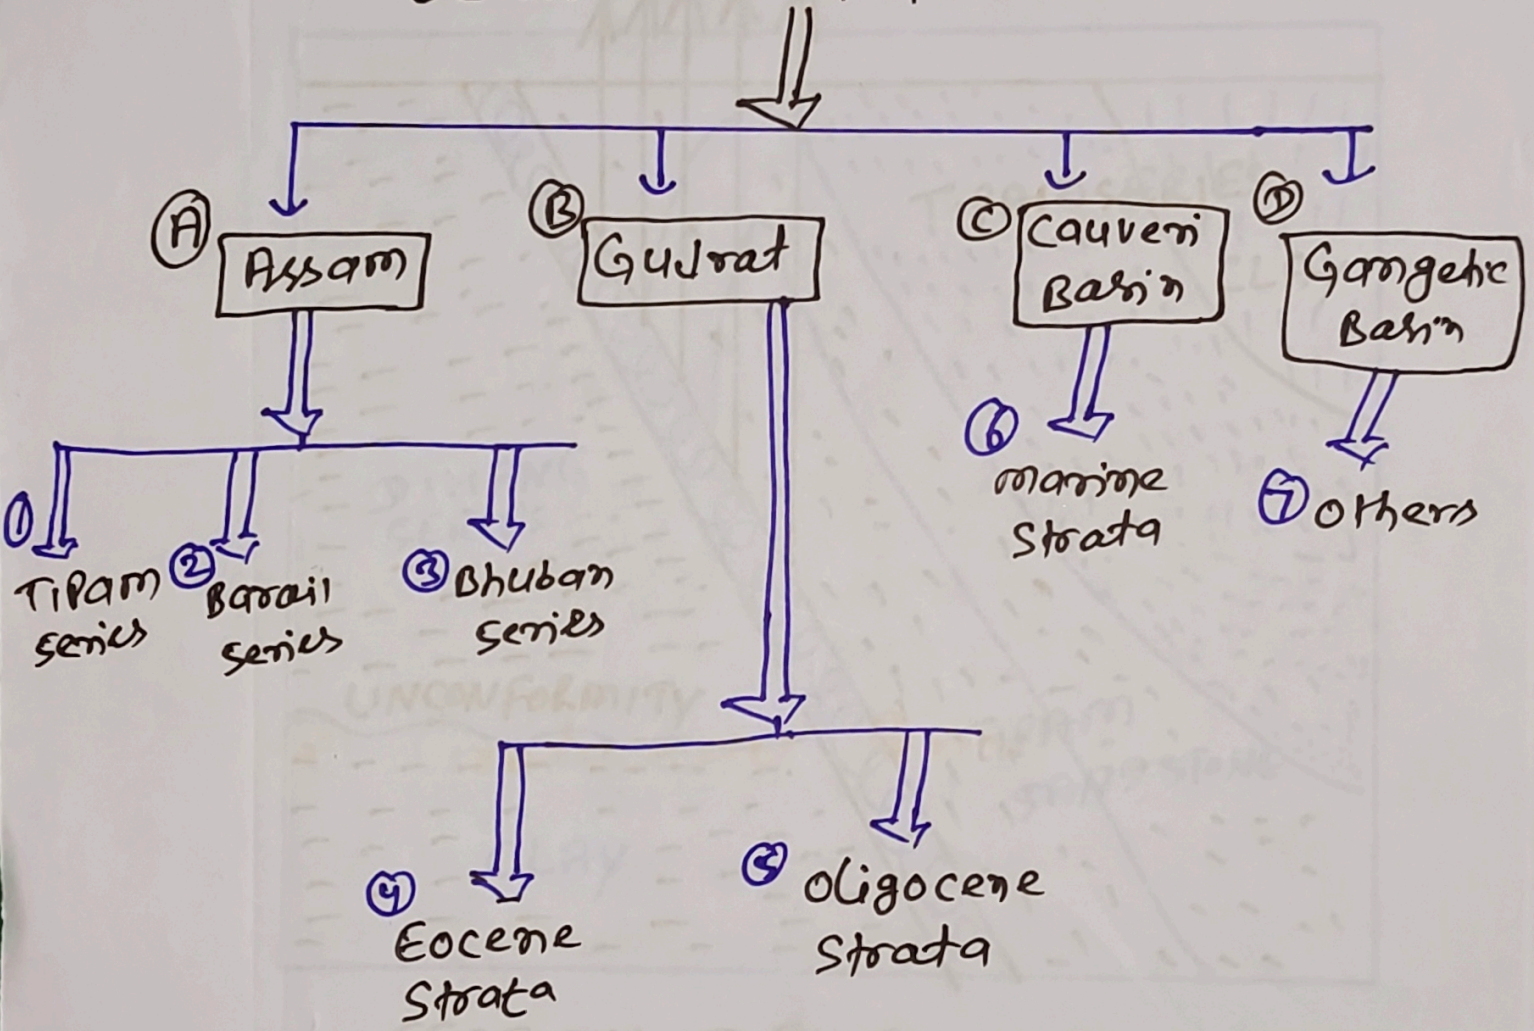 A
Assam
B
Gujrat
C
Cauveri
Basin
D
Gangetic
Basin
1
Tipam
series
2
Barail
series
3
Bhuban
series
6
marine
Strata
7
others
UNCONFORMITY
4
Eocene
Strata
5
Oligocene
Strata